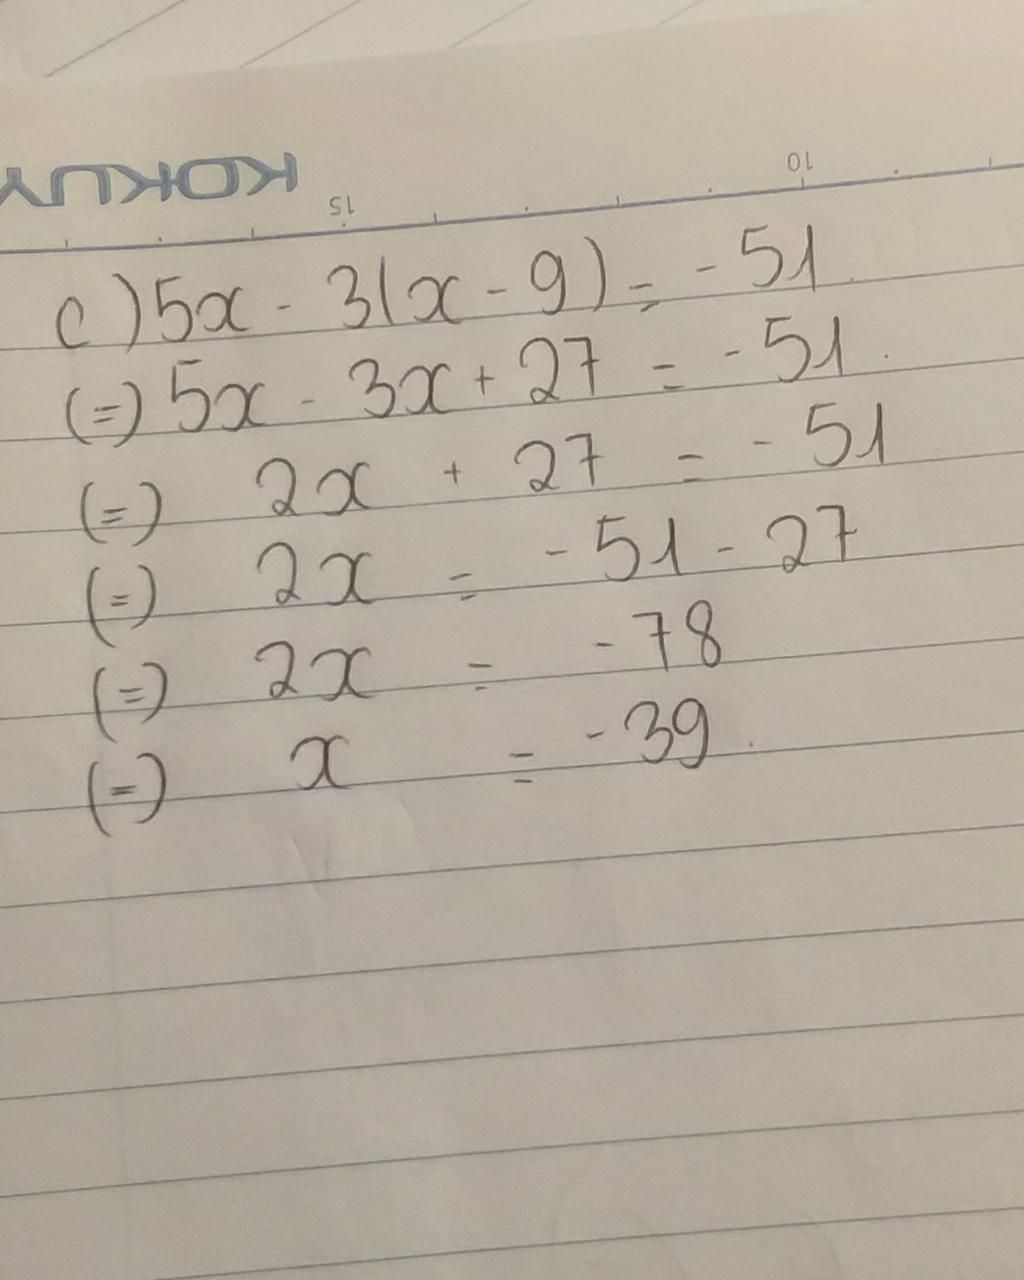 KOKUY
15 10
c) 5x - 3(x - 9) = - 51.
(=) 5x - 3x + 27 = - 51.
(=) 2x + 27 = - 51
(=) 2x = - 51 - 27
(=) 2x = - 78
(=) x = - 39.